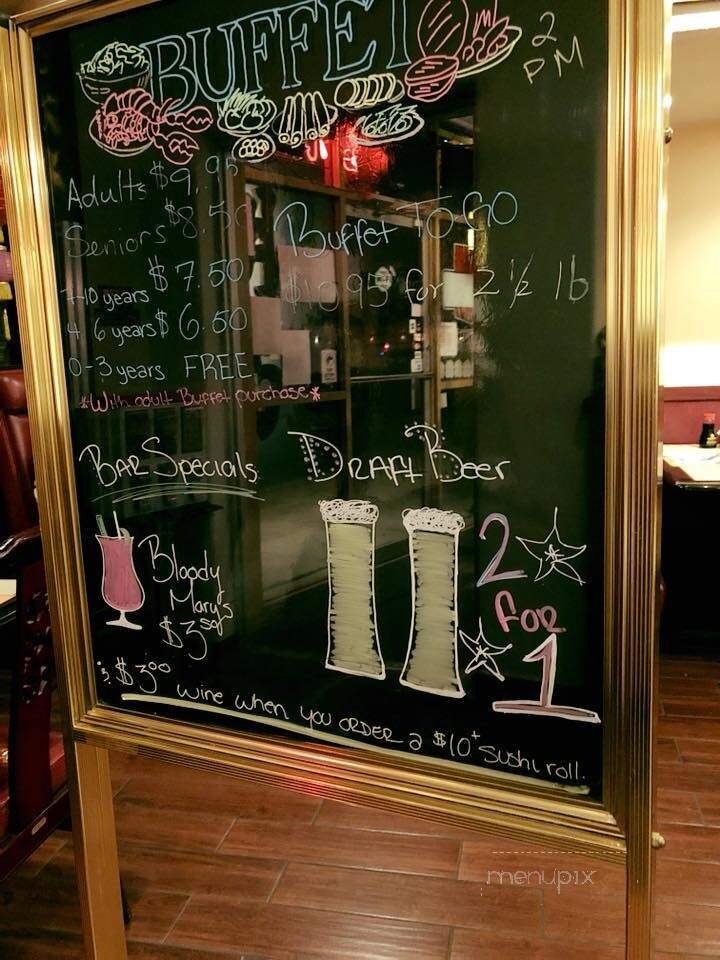 BUFFET
2 PM
Adults $9.95
Seniors $8.50
7-10 years $7.50
4-6 years $6.50
0-3 years FREE
*With adult Buffet purchase*
Buffet TO GO
$10.95 for 2 1/2 lb
BAR Specials
Bloody
Mary's
$3.50
DRAFt Beer
2
FOR
1
$3.00 wine when you ORDER a $10+ Sushi roll.
menupix